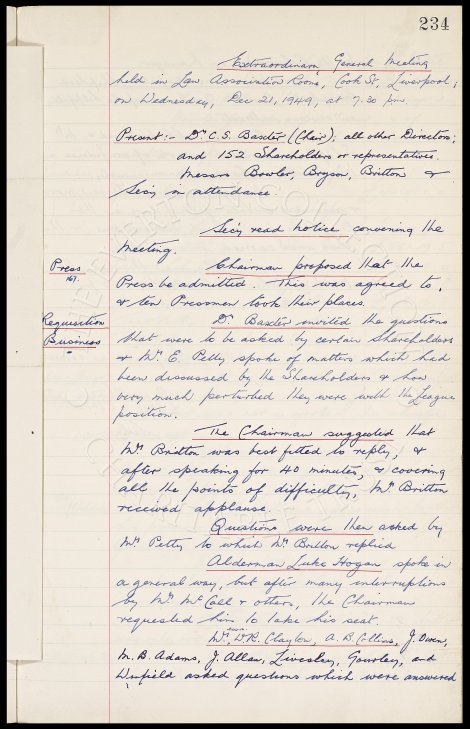 234
Extraordinary General Meeting
held in Law Association Rooms, Cook St, Liverpool;
on Wednesday, Dec 21, 1949, at 7.30 pm.
Present:- Dr C.S. Baxter (Chair), all other Directors;
and 152 Shareholders or representatives.
Messrs Bowler, Bryson, Britton &
Secy in attendance.
Secy read notice convening the
Meeting.
Press
167.
Chairman proposed that the
Press be admitted. This was agreed to,
& ten Pressmen took their places.
Requisition
Business
Dr Baxter invited the questions
that were to be asked by certain Shareholders
& Mr. E. Petty spoke of matters which had
been discussed by the Shareholders & how
very much perturbed they were with the League
position.
The Chairman suggested that
Mr Britton was best fitted to reply, &
after speaking for 40 minutes, & covering
all the points of difficulty, Mr Britton
received applause.
Questions were then asked by
Mr Petty to which Mr Britton replied
Alderman Luke Hogan spoke in
a general way, but after many interruptions
by Mr McCall & others, the Chairman
requested him to take his seat.
W.R. Clayton, A.B. Collins, J. Owen,
M.B. Adams, J. Allan, Livesley, Gourley, and
Winfield asked questions which were answered